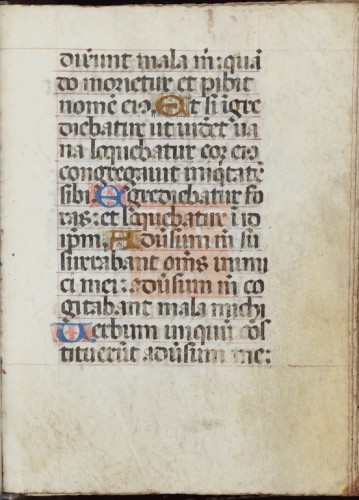 dixerunt mala m̄: quā
do morietur et p̱ibit
nomē eiꝰ. Et si īgre
diebatur ut uidet̄ ua
na loquebatur cor eiꝰ
congregauit īniq̄tatē
sibi Egrediebatur fo
ras: et loquebatur ī id
ip̄m. Aduersum m̄ su
surrabant om̄s inimi
ci mei: aduersum m̄ co
gitabant mala michi
Uerbum iniquū cōs
tituerūt aduersum me: